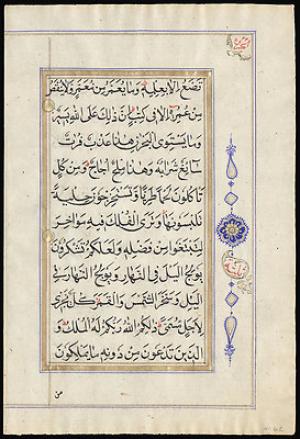 تَضَعُ اِلَّا بِعِلْمِهٖ وَمَا يُعَمَّرُ مِنْ مُعَمَّرٍ وَلَا يُنْقَصُ
مِنْ عُمُرِهٖ اِلَّا فِى كِتَابٍ اِنَّ ذٰلِكَ عَلَى اللهِ يَسِيْرٌ
وَمَا يَسْتَوِى الْبَحْرٰنِ هٰذَا عَذْبٌ فُرَاتٌ
سَائِغٌ شَرَابُهُ وَهٰذَا مِلْحٌ اُجَاجٌ وَمِنْ كُلٍّ
تَأكُلُونَ لَحْمًا طَرِيًّا وَتَسْتَخْرِجُوْنَ حِلْيَةً
تَلْبَسُوْنَهَا وَتَرَى الْفُلْكَ فِيْهِ مَوَاخِرَ
لِتَبْتَغُوْا مِنْ فَضْلِهٖ وَلَعَلَّكُمْ تَشْكُرُوْنَ
يُوْلِجُ الَّيْلَ فِى النَّهَارِ وَيُوْلِجُ النَّهَارَ فِى
الَّيْلِ وَسَخَّرَ الشَّمْسَ وَالْقَمَرَ كُلٌّ يَجْرِى
لِاَجَلٍ مُسَمًّى ذٰلِكُمُ اللهُ رَبُّكُمْ لَهُ الْمُلْكُ وَ
الَّذِيْنَ تَدْعُوْنَ مِنْ دُوْنِهٖ مَا يَمْلِكُوْنَ
من